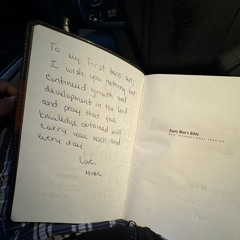 To my first born son,
I wish you nothing but
continued growth and
development in the Lord
and pray that the
knowledge obtained will
carry you each and
every day.
Love,
Mom
Every Man's Bible
NEW INTERNATIONAL VERSION